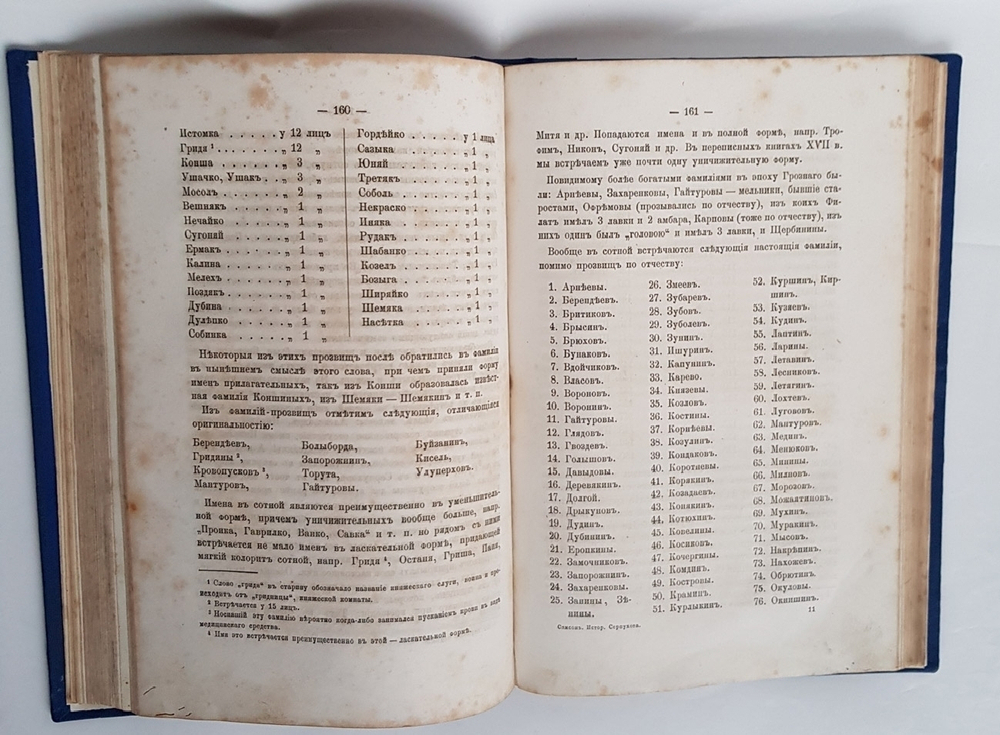 — 160 —
Истомка . . . . . . у 12 лицъ
Гридя ¹ . . . . . . „ 12 „
Конша . . . . . . „ 3 „
Ушачко, Ушак. . . „ 3 „
Мосолъ . . . . . . „ 2 „
Вешнякъ . . . . . „ 1 „
Нечайко . . . . . „ 1 „
Сугоняй . . . . . „ 1 „
Ермакъ . . . . . . „ 1 „
Калина . . . . . . „ 1 „
Мелехъ . . . . . . „ 1 „
Поздякъ . . . . . „ 1 „
Дубина . . . . . . „ 1 „
Дулѣпко . . . . . „ 1 „
Собинка . . . . . „ 1 „
Гордѣйко . . . . . у 1 лица
Сазыка . . . . . . „ 1 „
Юняй . . . . . . „ 1 „
Третякъ . . . . . „ 1 „
Соболь . . . . . . „ 1 „
Некраско . . . . . „ 1 „
Иняка . . . . . . „ 1 „
Рудакъ . . . . . . „ 1 „
Шабанко . . . . . „ 1 „
Козелъ . . . . . . „ 1 „
Бозыга . . . . . . „ 1 „
Ширяйко . . . . . „ 1 „
Шемяка . . . . . . „ 1 „
Насѣтка . . . . . „ 1 „
Нѣкоторыя изъ этихъ прозвищъ послѣ обратились въ фамиліи
въ нынѣшнемъ смыслѣ этого слова, при чемъ приняли форму
именъ прилагательныхъ, такъ изъ Конши образовалась извѣст-
ная фамилія Коншиныхъ, изъ Шемяки — Шемякинъ и т. п.
Изъ фамилій-прозвищъ отмѣтимъ слѣдующія, отличающіяся
оригинальностію:
Берендѣевъ, Болыборда, Буйзанинъ,
Гридины ², Запорожнинъ, Кисель,
Кровопусковъ ³, Торута, Улуперховъ.
Мантуровъ, Гайтуровы.
Имена въ сотной являются преимущественно въ уменьшитель-
ной формѣ, причемъ уничижительныхъ вообще больше, напр.
„Пронка, Гаврилко, Ванко, Савка“ и т. п. но рядомъ съ ними
встрѣчается не мало именъ въ ласкательной формѣ, придающей
мягкій колоритъ сотной, напр. Гридя ⁴, Останя, Гриша, Паня,
¹ Слово „гридя“ въ старину обозначало названіе княжескаго слуги, воина и про-
исходитъ отъ „гридницы“, княжеской комнаты.
² Встрѣчается у 15 лицъ.
³ Носившій эту фамилію вѣроятно когда-либо занимался пусканіемъ крови въ видѣ
медицинскаго средства.
⁴ Имя это встрѣчается преимущественно въ этой — ласкательной формѣ.
— 161 —
Митя и др. Попадаются имена и въ полной формѣ, напр. Тро-
фимъ, Никонъ, Сугоняй и др. Въ переписныхъ книгахъ XVII в.
мы встрѣчаемъ уже почти одну уничижительную форму.
Повидимому болѣе богатыми фамиліями въ эпоху Грознаго бы-
ли: Арнѣевы, Захаренковы, Гайтуровы — мельники, бывшіе ста-
ростами, Офремовы (прозывались по отчеству), изъ коихъ Фи-
латъ имѣлъ 3 лавки и 2 амбара, Карповы (тоже по отчеству), изъ
нихъ одинъ былъ „головою“ и имѣлъ 3 лавки, и Щербинины.
Вообще въ сотной встрѣчаются слѣдующія настоящія фамиліи,
помимо прозвищъ по отчеству:
1. Арнѣевы.
2. Берендѣевъ.
3. Бритиковъ.
4. Брысинъ.
5. Брюховъ.
6. Бунаковъ.
7. Вдойчиковъ.
8. Власовъ.
9. Вороновъ.
10. Воронинъ.
11. Гайтуровы.
12. Глядовъ.
13. Гвоздевъ.
14. Голышовъ.
15. Давыдовы.
16. Деревянкинъ.
17. Долгой.
18. Дрыкуновъ.
19. Дудинъ.
20. Дубининъ.
21. Еропкины.
22. Замочниковъ.
23. Запорожнинъ.
24. Захаренковы.
25. Занины, Зѣ-
нины.
26. Змеевъ.
27. Зубаревъ.
28. Зубовъ.
29. Зуболевъ.
30. Зунинъ.
31. Ишуринъ.
32. Капунинъ.
33. Карево.
34. Князевы.
35. Козловъ.
36. Костины.
37. Корнѣевы.
38. Козулинъ.
39. Кондаковъ.
40. Коротневы.
41. Корякинъ.
42. Козадаевъ.
43. Конякинъ.
44. Котюхинъ.
45. Ковелины.
46. Косиковъ.
47. Кочергины.
48. Комдинъ.
49. Костровы.
50. Краминъ.
51. Курлыкинъ.
52. Куршинъ, Кир-
шинъ.
53. Кузяевъ.
54. Кудинъ.
55. Лаптинъ.
56. Ларины.
57. Летавинъ.
58. Лесниковъ.
59. Летягинъ.
60. Лохтевъ.
61. Лугововъ.
62. Мантуровъ.
63. Мединъ.
64. Менюковъ.
65. Минины.
66. Милновъ.
67. Морозовъ.
68. Можаятиновъ.
69. Мухинъ.
70. Муракинъ.
71. Мысовъ.
72. Накрѣпинъ.
73. Нахожевъ.
74. Обрютинъ.
75. Окуловы.
76. Окишинъ.
Симсонъ. Истор. Серпухова.
11